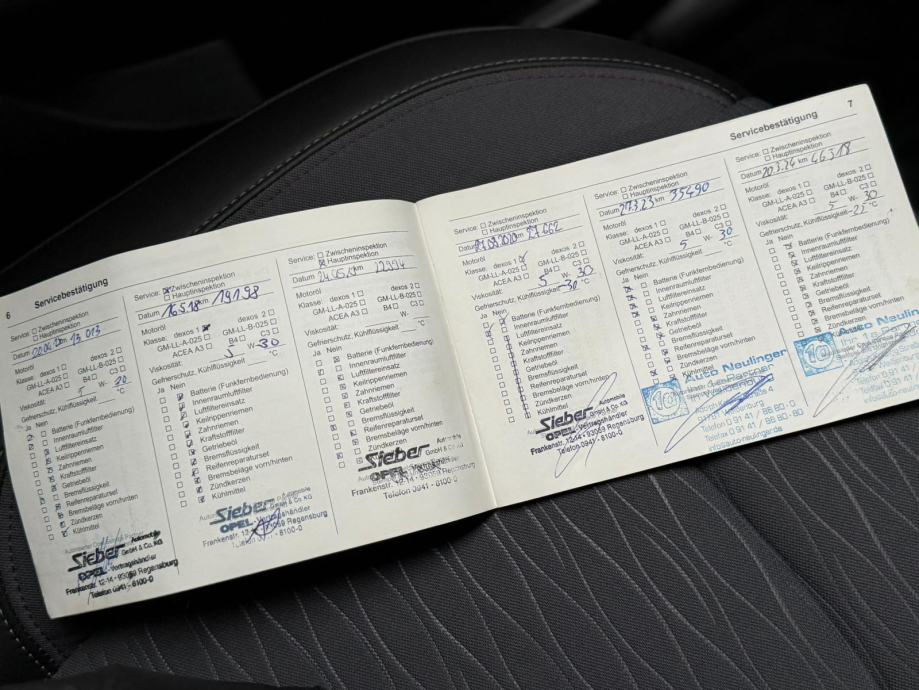 6 Servicebestätigung
Service: ☐ Zwischeninspektion
☐ Hauptinspektion
Datum km 13 013
Motoröl
Klasse: dexos 1 ☐ dexos 2 ☐
GM-LL-A-025 ☐ GM-LL-B-025 ☐
ACEA A3 ☐ B4 ☐ C3 ☐
Viskosität: 5 W- °C
Gefrierschutz, Kühlflüssigkeit
Ja Nein
Batterie (Funkfernbedienung)
Innenraumluftfilter
Luftfiltereinsatz
Keilrippenriemen
Zahnriemen
Kraftstofffilter
Getriebeöl
Bremsflüssigkeit
Reifenreparaturset
Bremsbeläge vorn/hinten
Zündkerzen
Kühlmittel
Sieber Automobile
GmbH & Co. KG
OPEL - Vertragshändler
Frankenstr. 12-14 • 93059 Regensburg
Telefon 0941 - 6100-0
Service: ☒ Zwischeninspektion
☐ Hauptinspektion
Datum 16.5.18 km 19198
Motoröl
Klasse: dexos 1 ☒ dexos 2 ☐
GM-LL-A-025 ☐ GM-LL-B-025 ☐
ACEA A3 ☐ B4 ☐ C3 ☐
Viskosität: 5 W- 30
Gefrierschutz, Kühlflüssigkeit °C
Ja Nein
Batterie (Funkfernbedienung)
Innenraumluftfilter
Luftfiltereinsatz
Keilrippenriemen
Zahnriemen
Kraftstofffilter
Getriebeöl
Bremsflüssigkeit
Reifenreparaturset
Bremsbeläge vorn/hinten
Zündkerzen
Kühlmittel
Sieber Automobile
GmbH & Co. KG
OPEL - Vertragshändler
Frankenstr. 12-14 • 93059 Regensburg
Telefon 0941 - 6100-0
Service: ☐ Zwischeninspektion
☒ Hauptinspektion
Datum km 22394
Motoröl
Klasse: dexos 1 ☐ dexos 2 ☐
GM-LL-A-025 ☐ GM-LL-B-025 ☐
ACEA A3 ☐ B4 ☐ C3 ☐
Viskosität: W-
Gefrierschutz, Kühlflüssigkeit °C
Ja Nein
Batterie (Funkfernbedienung)
Innenraumluftfilter
Luftfiltereinsatz
Keilrippenriemen
Zahnriemen
Kraftstofffilter
Getriebeöl
Bremsflüssigkeit
Reifenreparaturset
Bremsbeläge vorn/hinten
Zündkerzen
Kühlmittel
Sieber Automobile
GmbH & Co. KG
OPEL - Vertragshändler
Frankenstr. 12-14 • 93059 Regensburg
Telefon 0941 - 6100-0
Servicebestätigung 7
Service: ☐ Zwischeninspektion
☐ Hauptinspektion
Datum km 27662
Motoröl
Klasse: dexos 1 dexos 2 ☐
GM-LL-A-025 ☐ GM-LL-B-025 ☐
ACEA A3 ☐ B4 ☐ C3 ☐
Viskosität: 5 W- 30
Gefrierschutz, Kühlflüssigkeit -30 °C
Ja Nein
Batterie (Funkfernbedienung)
Innenraumluftfilter
Luftfiltereinsatz
Keilrippenriemen
Zahnriemen
Kraftstofffilter
Getriebeöl
Bremsflüssigkeit
Reifenreparaturset
Bremsbeläge vorn/hinten
Zündkerzen
Kühlmittel
Sieber Automobile
GmbH & Co. KG
OPEL - Vertragshändler
Frankenstr. 12-14 • 93059 Regensburg
Telefon 0941 - 6100-0
Service: ☐ Zwischeninspektion
☐ Hauptinspektion
Datum 27.3.23 km 35490
Motoröl
Klasse: dexos 1 ☐ dexos 2 ☐
GM-LL-A-025 ☐ GM-LL-B-025 ☐
ACEA A3 ☐ B4 ☐ C3 ☐
Viskosität: 5 W- 30
Gefrierschutz, Kühlflüssigkeit °C
Ja Nein
Batterie (Funkfernbedienung)
Innenraumluftfilter
Luftfiltereinsatz
Keilrippenriemen
Zahnriemen
Kraftstofffilter
Getriebeöl
Bremsflüssigkeit
Reifenreparaturset
Bremsbeläge vorn/hinten
Zündkerzen
Kühlmittel
Auto Neulinger
Telefon 0 91 41 / 86 80 - 0
Telefax 0 91 41 / 86 80 - 80
info@auto.neulinger.de
Service: ☐ Zwischeninspektion
☐ Hauptinspektion
Datum 20.3.24 km 46318
Motoröl
Klasse: dexos 1 ☐ dexos 2 ☐
GM-LL-A-025 ☐ GM-LL-B-025 ☐
ACEA A3 ☐ B4 ☐ C3 ☐
Viskosität: 5 W- 30
Gefrierschutz, Kühlflüssigkeit -22 °C
Ja Nein
Batterie (Funkfernbedienung)
Innenraumluftfilter
Luftfiltereinsatz
Keilrippenriemen
Zahnriemen
Kraftstofffilter
Getriebeöl
Bremsflüssigkeit
Reifenreparaturset
Bremsbeläge vorn/hinten
Zündkerzen
Auto Neulin